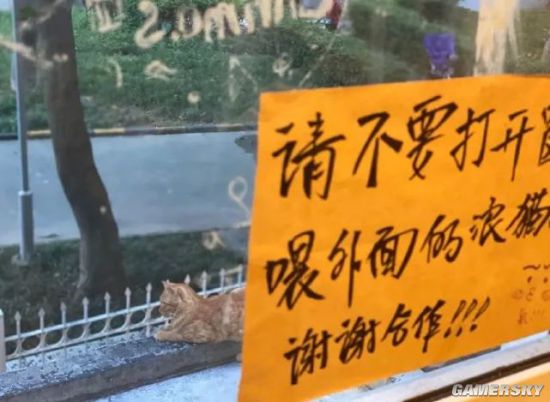 请不要打开
喂外面的浪猫
谢谢合作!!!
GAMERSKY